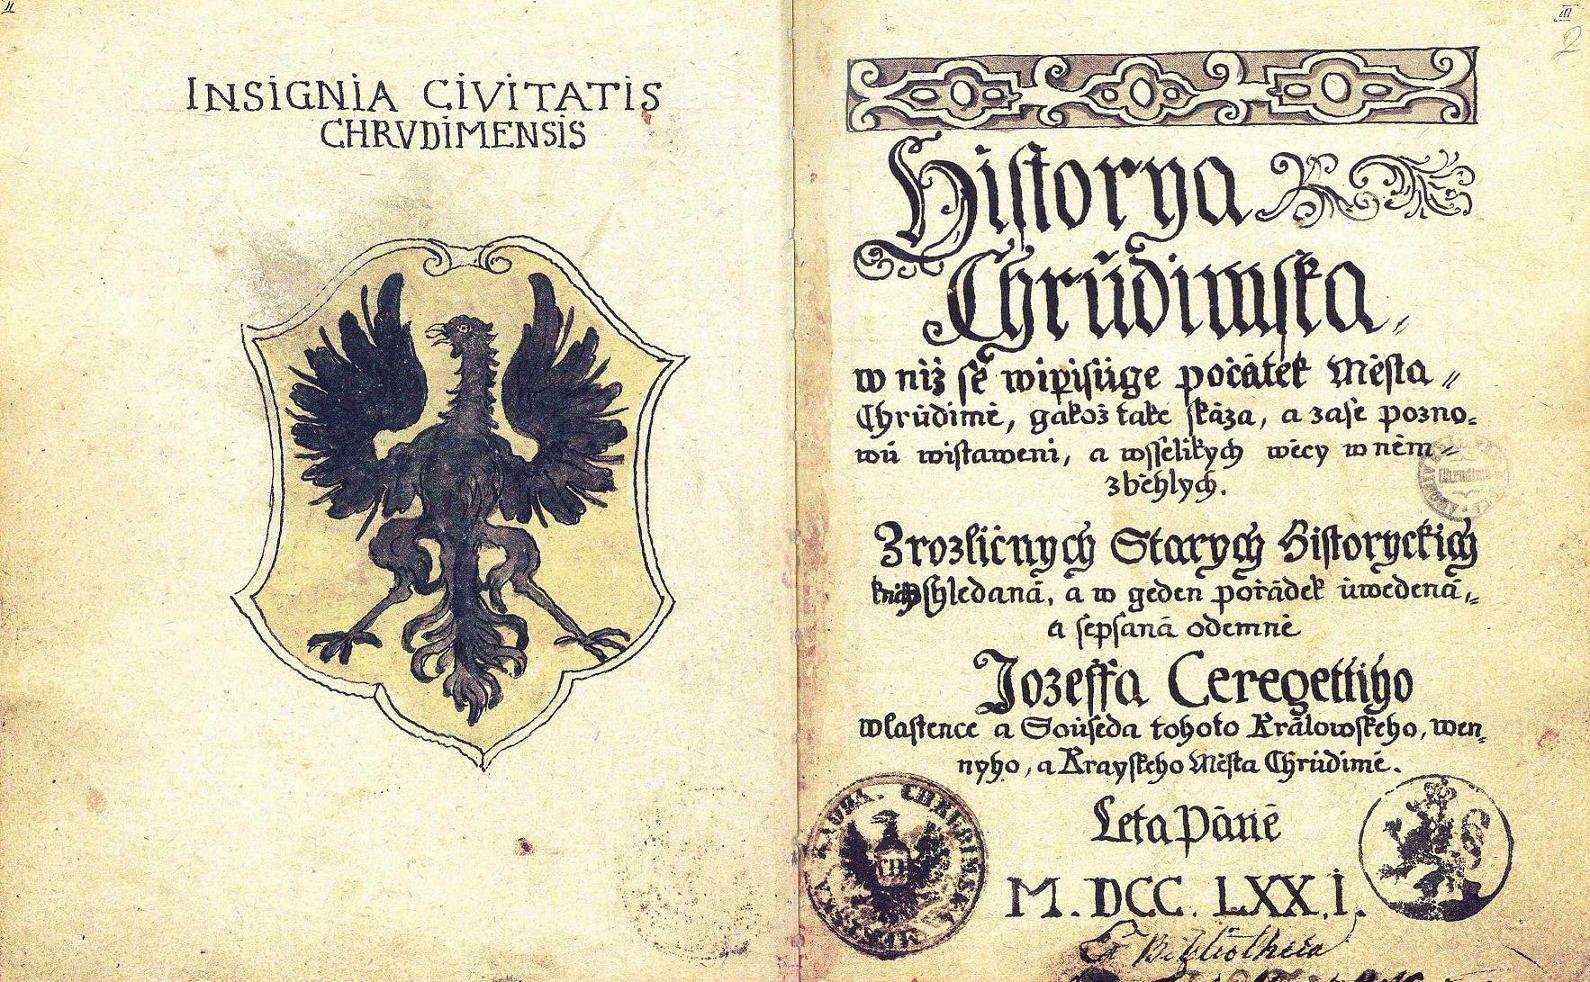 II
INSIGNIA CIVITATIS
CHRVDIMENSIS
III
2
Historya
Chrudimska,
w niž se wipisuge počátek Města
Chrudimě, gakož také skáza, a zase pozno-
wu wistaweni, a wsselikych wěcy w něm
zběhlych.
Zrozličnych Starych Historyckich
knih shledaná, a w geden pořádek uwedená,
a sepsaná odemně
Jozeffa Ceregettiho
wlastence a Souseda tohoto Králowskeho, wen,
nyho, a Krayskeho Města Chrudimě.
Leta Páně
M. DCC. LXX.I.
CH
Ex Bibliotheca